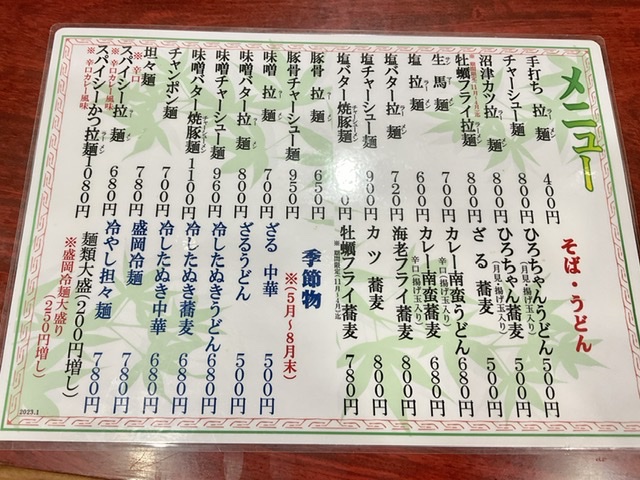 メニュー
手打ち拉麺 400円
ラーメン
チャーシュー麺 800円
沼津カツ拉麺 800円
ラーメン
牡蠣フライ拉麺 800円
ラーメン
生馬麺 700円
塩拉麺 600円
ラーメン
塩バター拉麺 720円
ラーメン
塩チャーシュー麺 900円
塩バター焼豚麺
チャーシューメン
豚骨拉麺 650円
ラーメン
豚骨チャーシュー麺 950円
味噌拉麺 700円
ラーメン
味噌バター拉麺 800円
ラーメン
味噌チャーシュー麺 960円
味噌バター焼豚麺 1100円
チャーシューメン
チャンポン麺 780円
坦々麺 780円
※辛口
スパイシー拉麺 680円
ラーメン
※辛口カレー風味
スパイシーかつ拉麺 1080円
ラーメン
※辛口カレー風味
そば・うどん
ひろちゃんうどん 550円
(月見・揚げ玉入り)
ひろちゃん蕎麦 550円
(月見・揚げ玉入り)
ざる蕎麦 500円
カレー南蛮うどん 680円
辛口(揚げ玉入り)
カレー南蛮蕎麦 680円
辛口(揚げ玉入り)
海老フライ蕎麦 880円
カツ蕎麦 880円
牡蠣フライ蕎麦 780円
季節物
※(5月〜8月末)
ざる中華 550円
ざるうどん 500円
冷したぬきうどん 680円
冷したぬき蕎麦 680円
冷したぬき中華 680円
盛岡冷麺 780円
冷やし担々麺 780円
麺類大盛(200円増し)
※盛岡冷麺大盛り
(250円増し)
2023.1